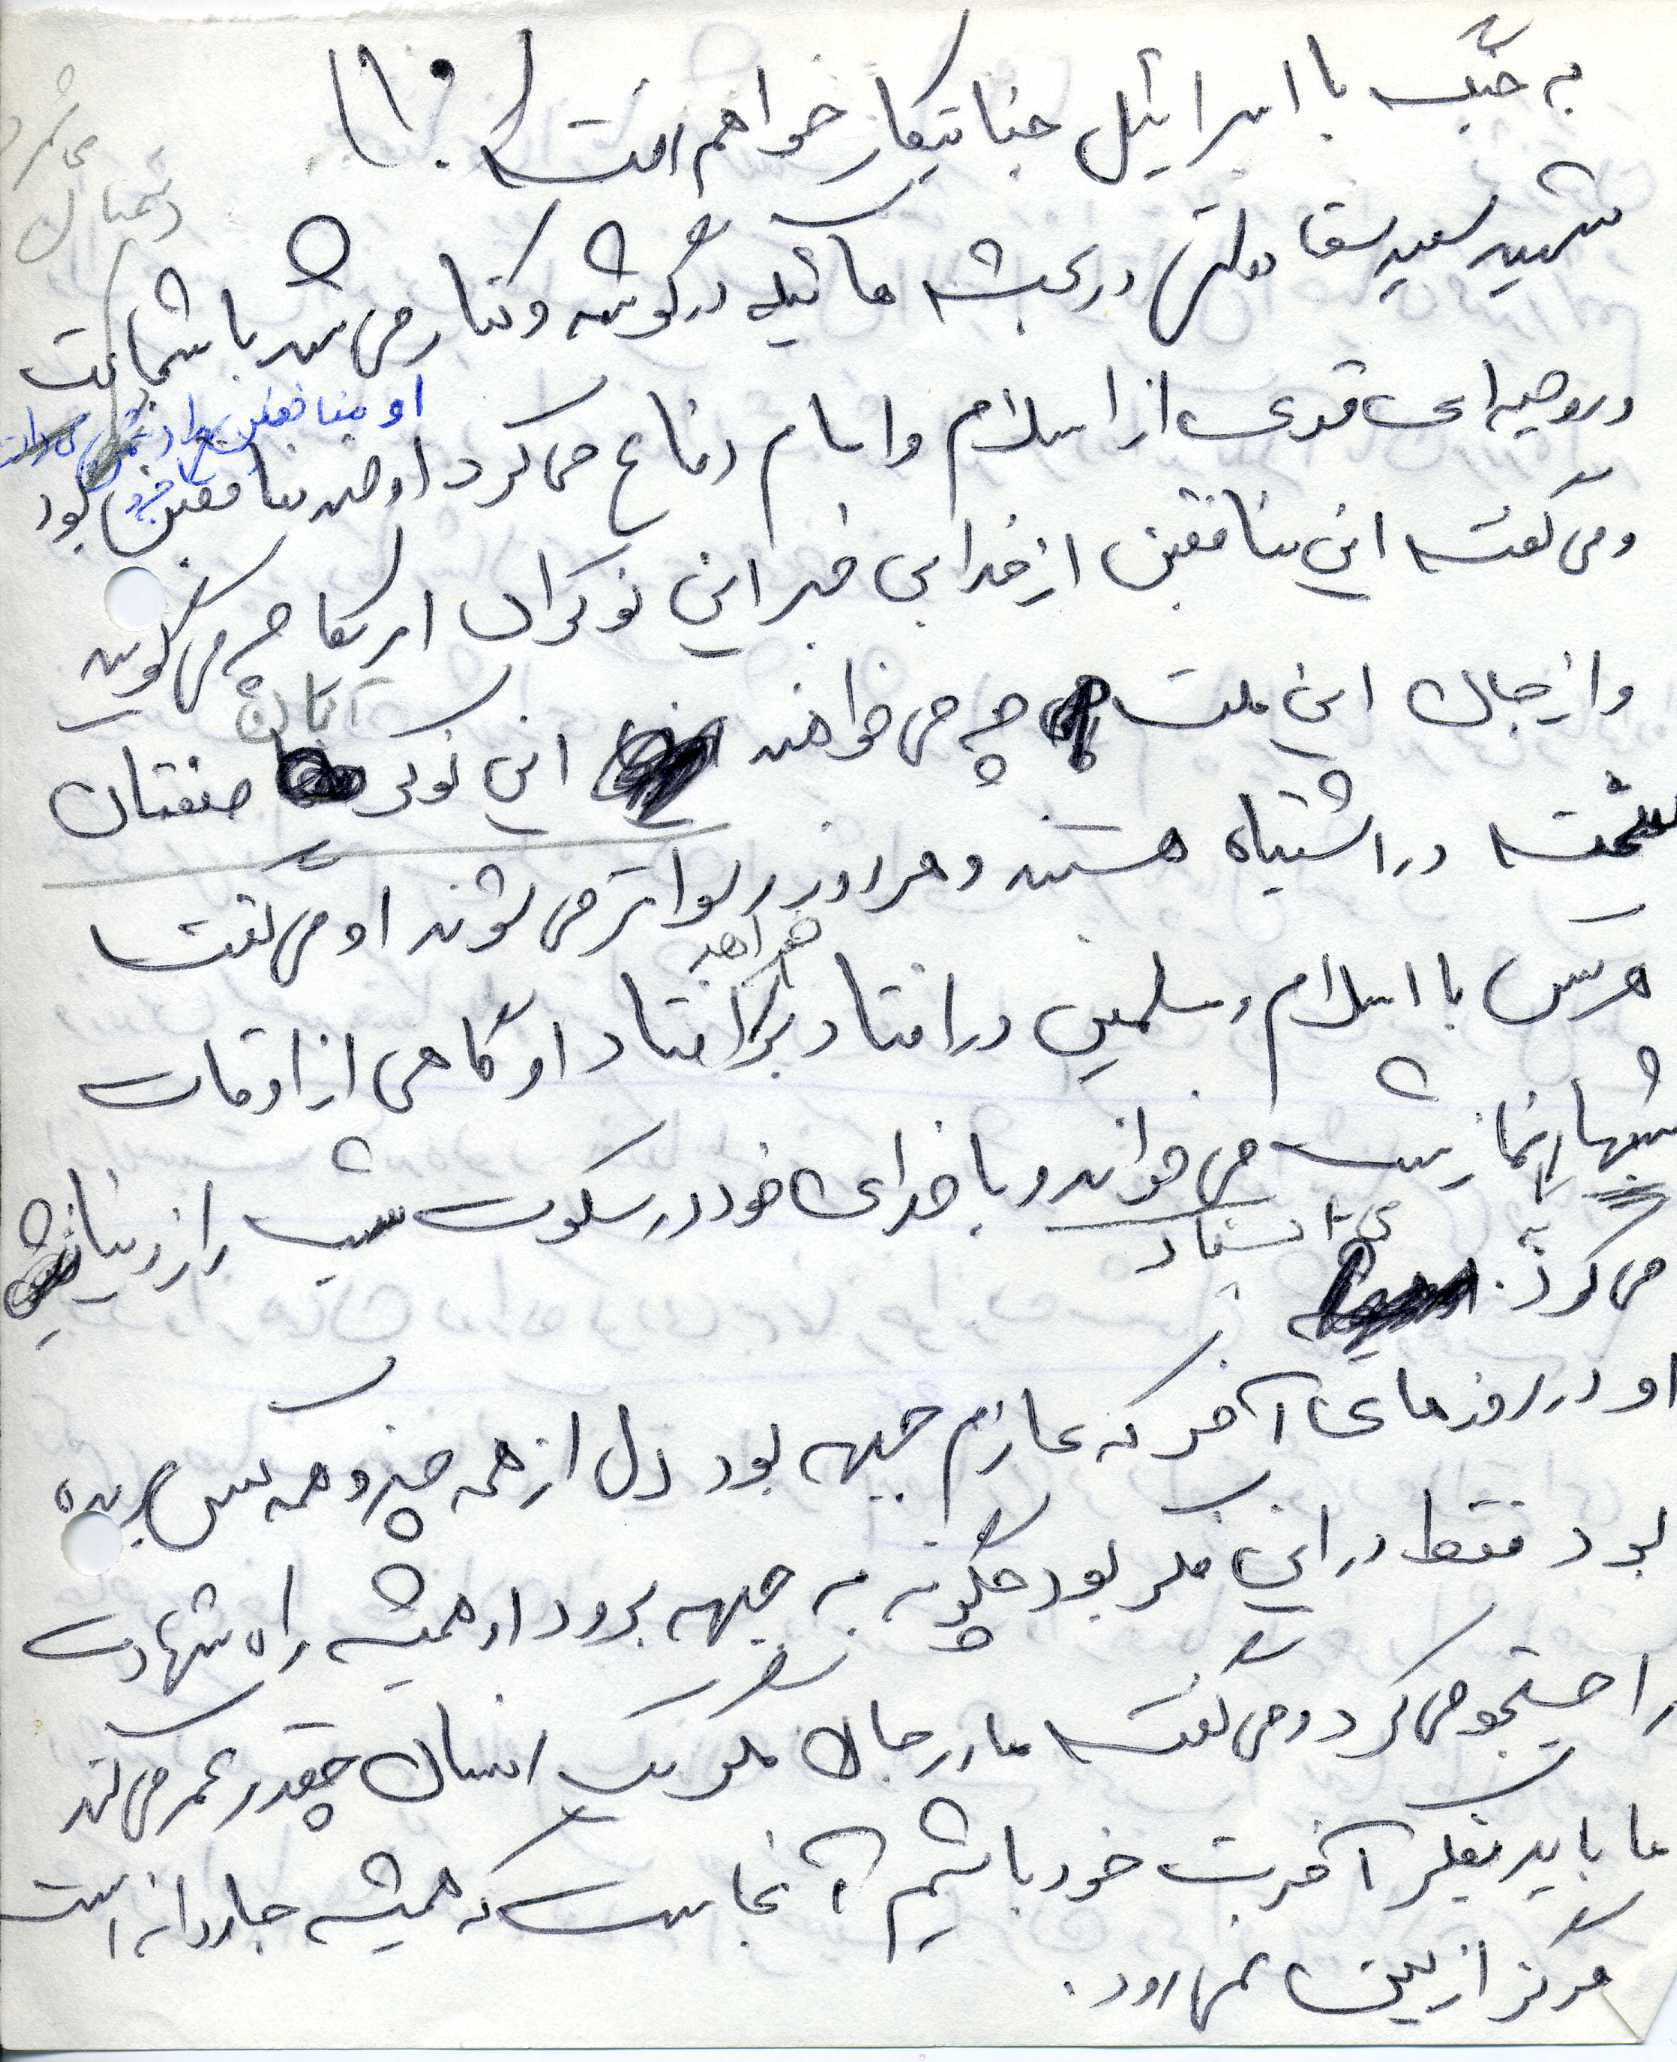 به جنگ با اسرائیل جنایتکار خواهم رفت (۱۰)
شهید سعید در بحثهائیکه در گوشه و کنار می شد با شهامت
و روحیه ای قوی از اسلام و امام دفاع می کرد او ضد منافقین بود
او منافقین را دشمن
دشمنان
و می گفت این منافقین از خدا بی خبر این نوکران امریکا چه می گویند
و از جان این ملت چه می خواهند این نوکر صفتان
آنان
سخت در اشتباه هستند و هر روز رسواتر می شوند او می گفت
هرکس با اسلام و مسلمین در افتاد بر افتاد او گاهی از اوقات
خواهد
شبها نماز شب می خواند و با خدای خود در سکوت شب راز و نیاز
می کرد.
او در روزهای آخر که عازم جبهه بود دل از همه چیز و همه کس بریده
بود فقط در این فکر بود چگونه به جبهه برود او همیشه راه شهادت
را جستجو می کرد و می گفت مادر جان مگر یک انسان چقدر عمر می کند
ما باید بفکر آخرت خود باشیم آنجاست که همیشه جاودانه است
هرگز از بین نمی رود.